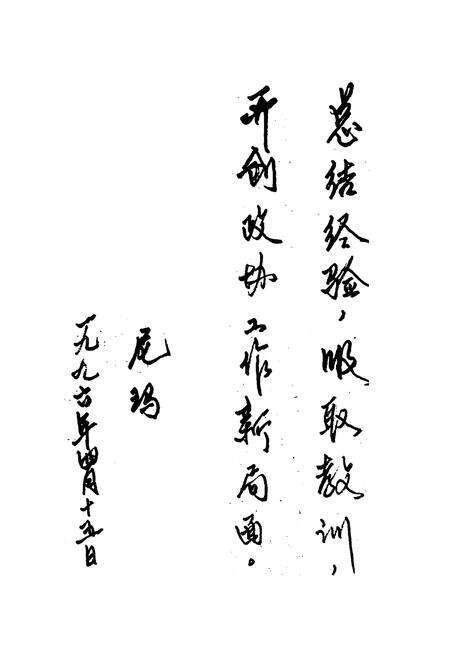 总结经验，吸取教训，
开创政协工作新局面。
尼玛
一九九六年四月十五日